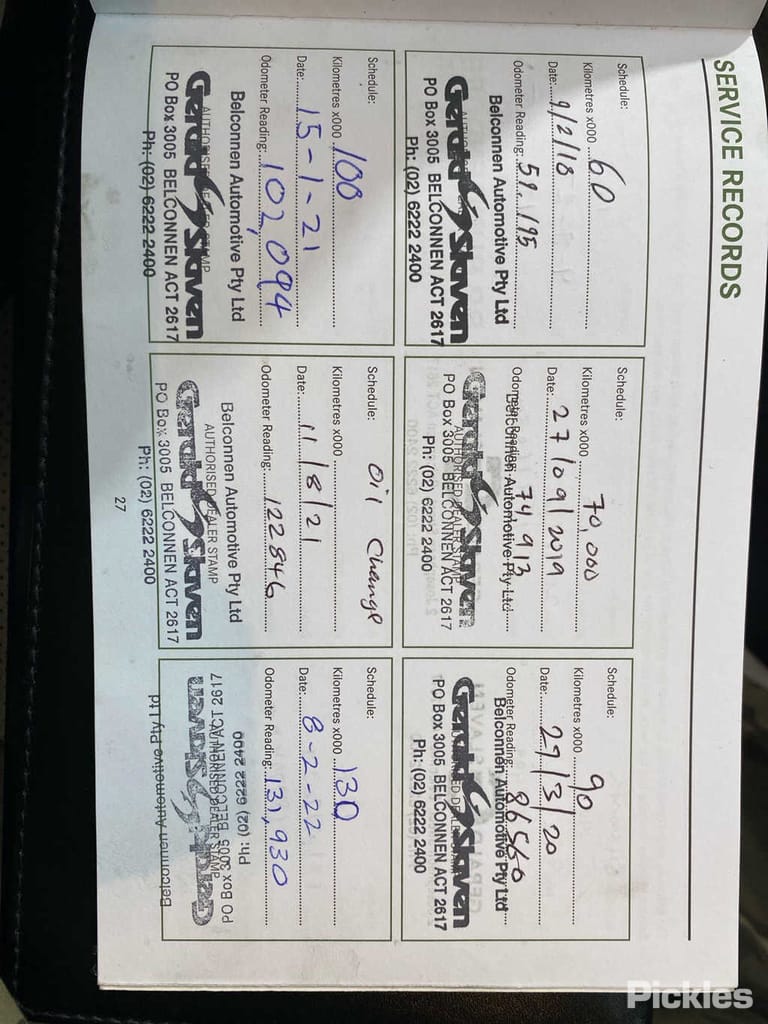 SERVICE RECORDS
Schedule:
Kilometres x000 60
Date: 9/2/18
Odometer Reading: 59,195
Belconnen Automotive Pty Ltd
Gerald Slaven
PO Box 3005 BELCONNEN ACT 2617
Ph: (02) 6222 2400
Schedule:
Kilometres x000 70,000
Date: 27/09/2019
Odometer Reading: 74,913
Belconnen Automotive Pty Ltd
Gerald Slaven
AUTHORISED DEALER STAMP
PO Box 3005 BELCONNEN ACT 2617
Ph: (02) 6222 2400
Schedule:
Kilometres x000 90
Date: 29/3/20
Odometer Reading: 86560
Belconnen Automotive Pty Ltd
Gerald Slaven
PO Box 3005 BELCONNEN ACT 2617
Ph: (02) 6222 2400
Schedule:
Kilometres x000 100
Date: 15-1-21
Odometer Reading: 102,094
Belconnen Automotive Pty Ltd
AUTHORISED DEALER STAMP
Gerald Slaven
PO Box 3005 BELCONNEN ACT 2617
Ph: (02) 6222 2400
Schedule: Oil Change
Kilometres x000
Date: 11/8/21
Odometer Reading: 122846
Belconnen Automotive Pty Ltd
AUTHORISED DEALER STAMP
Gerald Slaven
PO Box 3005 BELCONNEN ACT 2617
Ph: (02) 6222 2400
Schedule:
Kilometres x000 130
Date: 8-2-22
Odometer Reading: 131,930
Ph: (02) 6222 2400
PO Box 3005 BELCONNEN ACT 2617
AUTHORISED DEALER STAMP
Gerald Slaven
Belconnen Automotive Pty Ltd
27
Pickles